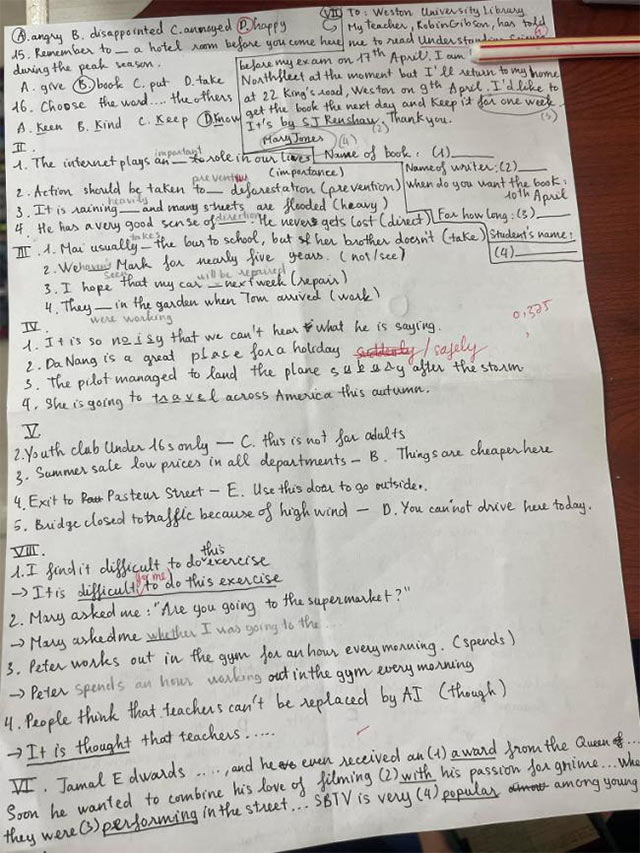 A. angry B. disappointed C. annoyed D. happy
15. Remember to __ a hotel room before you come here
during the peak season.
A. give B. book C. put D. take
16. Choose the word.... the others
A. Keen B. Kind C. Keep D. Know
VII To: Weston University Library
My teacher, Robin Gibson, has told
me to read Understanding
before my exam on 17th April. I am
Northfleet at the moment but I'll return to my home
at 22 King's road, Weston on 9th April. I'd like to
get the book the next day and keep it for one week
It's by SJ Renshaw. Thank you.
(2) (3)
Mary Jones (4)
Name of book: (1)____
Name of writer: (2)____
When do you want the book:
10th April
For how long: (3)____
Student's name:
(4)____
II.
important
1. The internet plays an __ role in our lives
(importance)
prevent
2. Action should be taken to __ deforestation (prevention)
heavily
3. It is raining __ and many streets are flooded (heavy)
direction
4. He has a very good sense of __. He never gets lost (direct)
takes
III. 1. Mai usually __ the bus to school, but her brother doesn't (take)
2. We haven't seen Mark for nearly five years. (not/see)
will be repaired
3. I hope that my car __ next week (repair)
4. They __ in the garden when Tom arrived (work)
were working
IV.
0,325
1. It is so noisy that we can't hear what he is saying.
2. Da Nang is a great place for a holiday
suddenly / safely
3. The pilot managed to land the plane after the storm
4. She is going to travel across America this autumn.
V.
2. Youth club Under 16s only — C. this is not for adults
3. Summer sale low prices in all departments — B. Things are cheaper here
4. Exit to Pasteur Street — E. Use this door to go outside.
5. Bridge closed to traffic because of high wind — D. You can not drive here today.
VIII.
1. I find it difficult to do this exercise
→ It is difficult for me to do this exercise
2. Mary asked me: "Are you going to the supermarket?"
→ Mary asked me whether I was going to the ...
3. Peter works out in the gym for an hour every morning. (spends)
→ Peter spends an hour working out in the gym every morning
4. People think that teachers can't be replaced by AI (though)
→ It is thought that teachers .....
VI. Jamal Edwards ...., and he even received an (1) award from the Queen of...
Soon he wanted to combine his love of filming (2) with his passion for grime...
they were (3) performing in the street... SBTV is very (4) popular among young